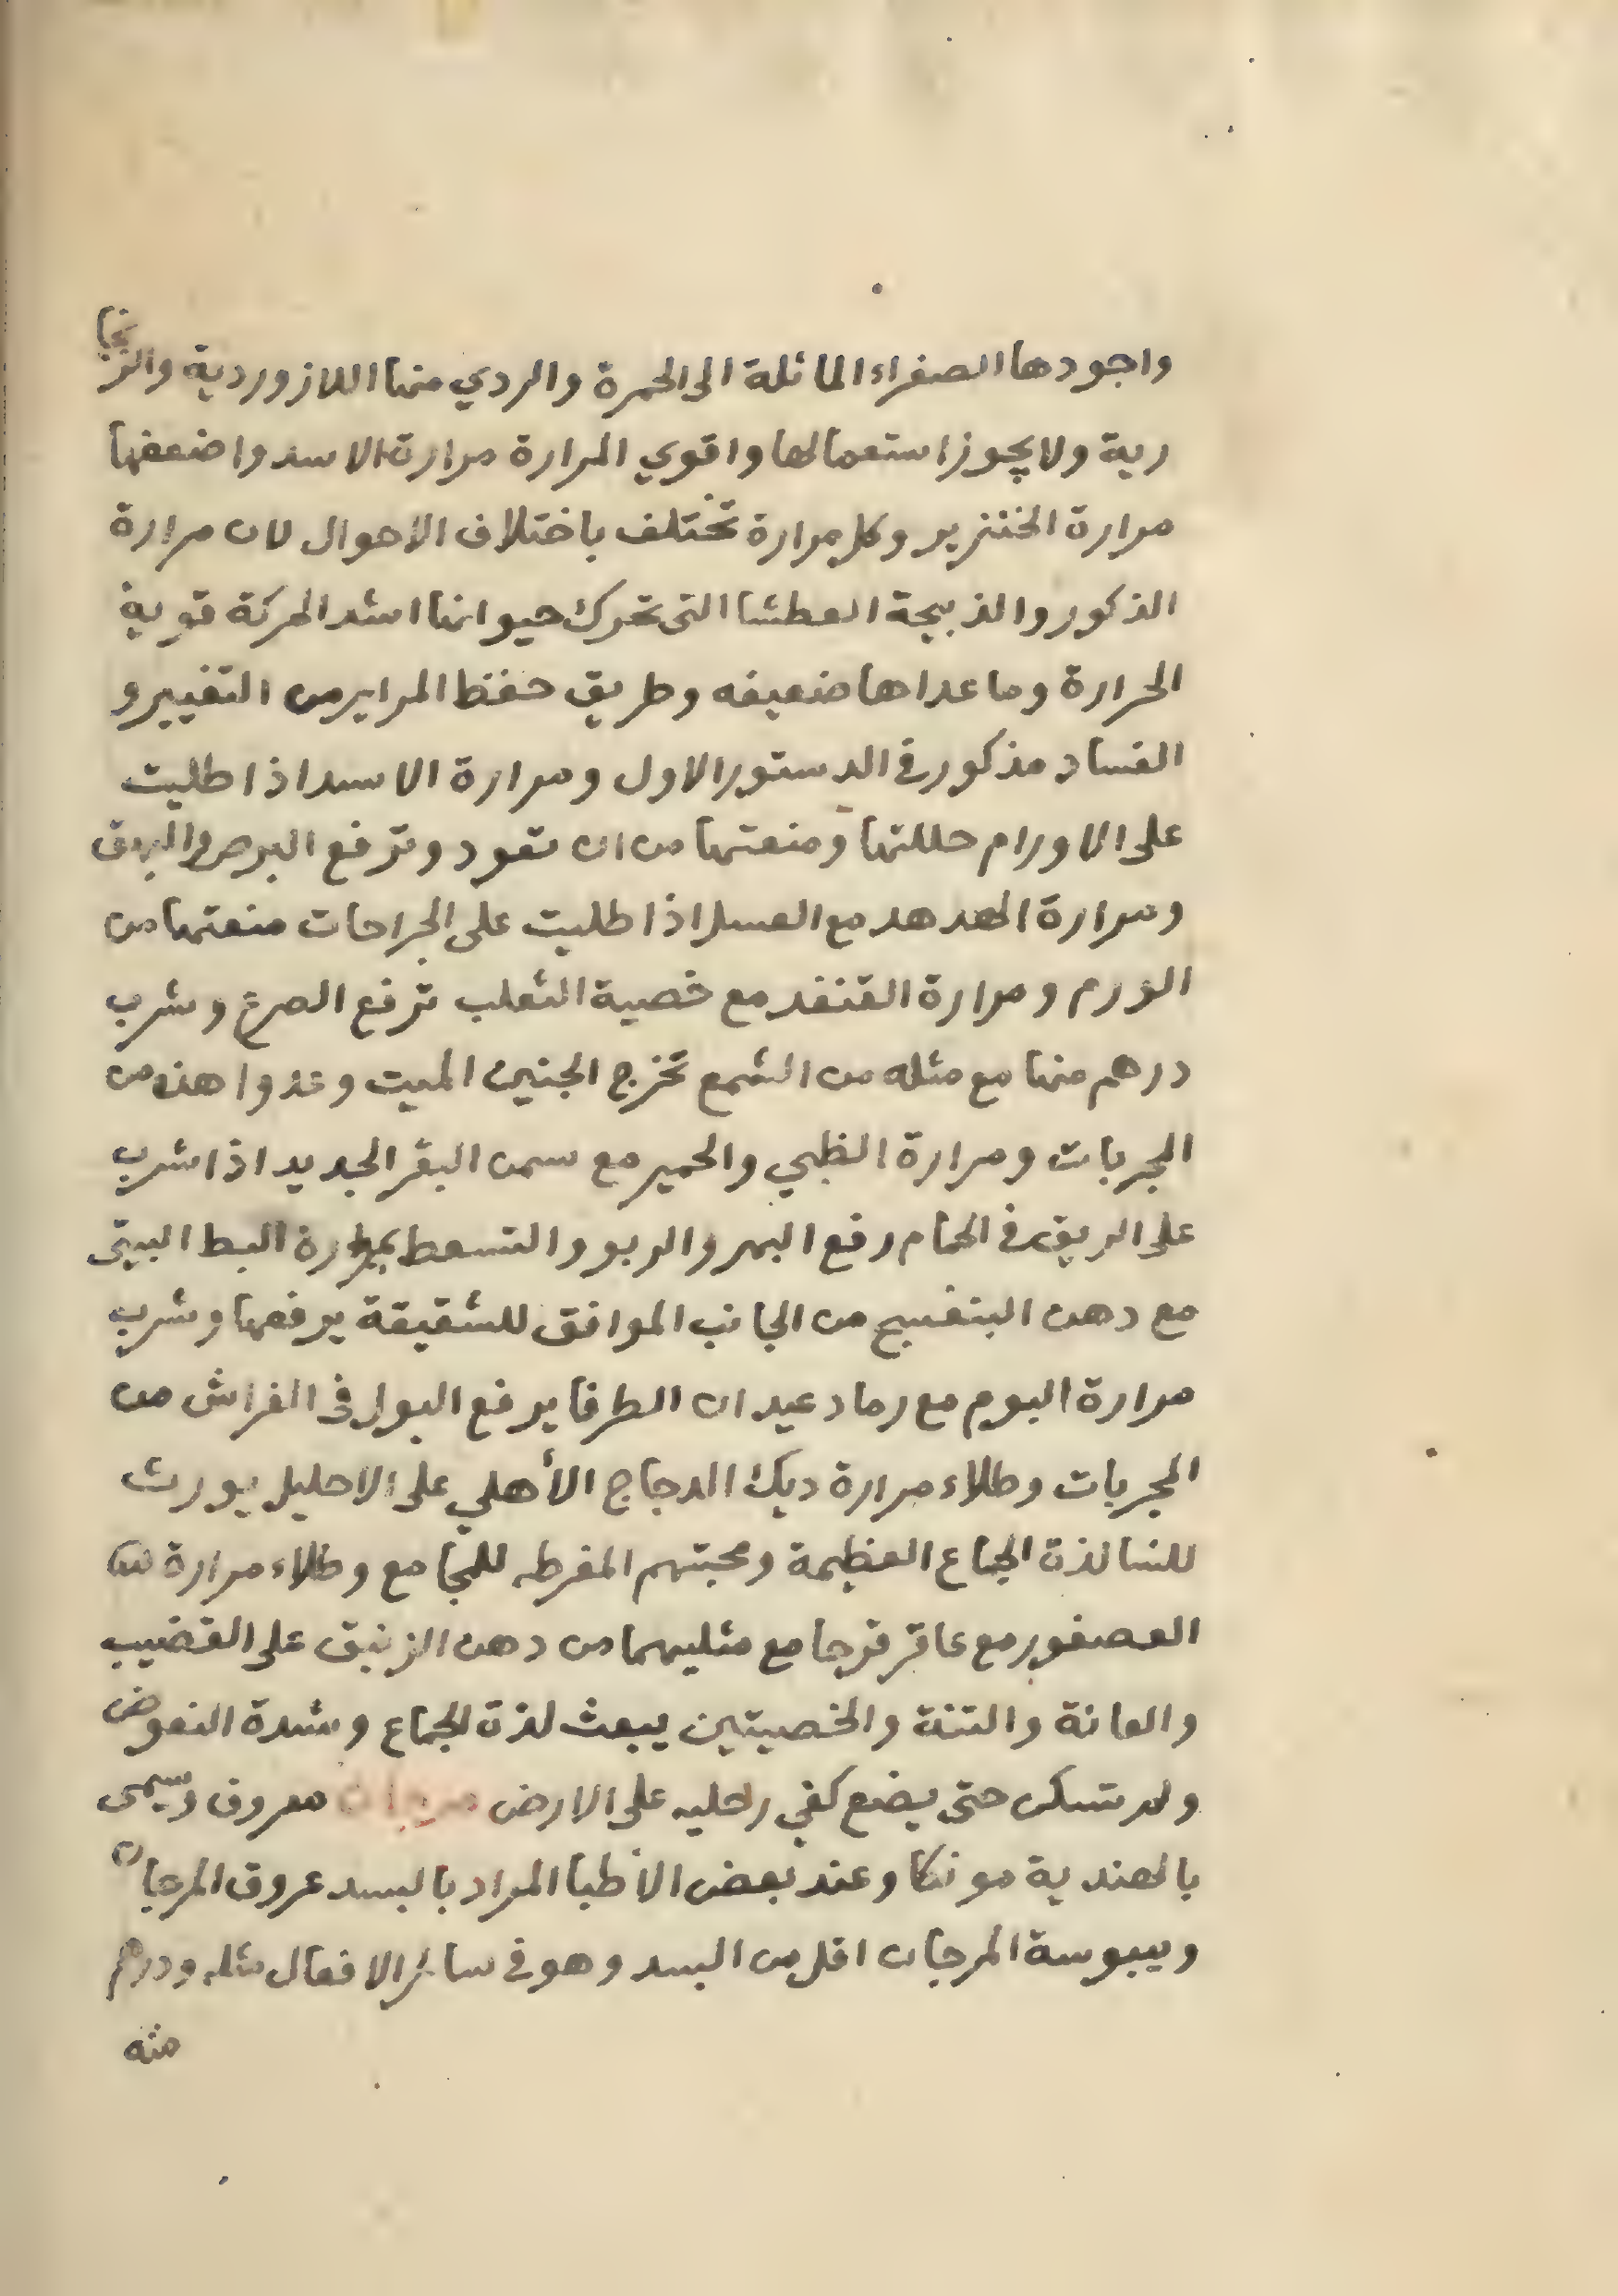 واجودها الصفراء المائلة الى الحمرة والردي منها اللازوردية والزنجا
رية ولا يجوز استعمالها واقوي المرارة مرارة الاسد واضعفها
مرارة الخنزير وكل مرارة تختلف باختلاف الاحوال لان مرارة
الذكور والذبيحة العطشا التى تحرك حيوانها اشد الحركة قوية
الحرارة وما عداها ضعيفه وطريق حفظ المراير من التغيير و
الفساد مذكور فى الدستور الاول ومرارة الاسد اذا طليت
على الاورام حللتها ومنعتها من ان تعود وترفع البرص والبهق
ومرارة الهدهد مع العسل اذا طليت على الجراحات منعتها من
الورم ومرارة القنفد مع خصية الثعلب ترفع الصرع وشرب
درهم منها مع مثله من الشمع تخرج الجنين الميت وعدوا هذه من
المجربات ومرارة الظبي والحمير مع سمن البقر الجديد اذا شرب
على الريق فى الحمام رفع البهر والربو والتسعط بمرارة البط البيتى
مع دهن البنفسج من الجانب الموافق للشقيقة يرفعها وشرب
مرارة البوم مع رماد عيدان الطرفا يرفع البول فى الفراش من
المجربات وطلاء مرارة ديك الدجاج الأهلي على الاحليل يورث
للنسا لذة الجماع العظيمة ومحبتهم المفرطه للمجامع وطلاء مرارة
العصفور مع عاقر قرحا مع مثليهما من دهن الزنبق على القضيب
والعانة والثنة والخصيتين يبعث لذة الجماع وشدة النعوض
ولم تسكن حتى يضع كفي رجليه على الارض مرجان معروف ويسمى
بالهندية مونكا وعند بعض الاطبا المراد بالبسد عروق المرجان
ويبوسة المرجان اقل من البسد وهو فى سائر الافعال مثله ودرهم
منه